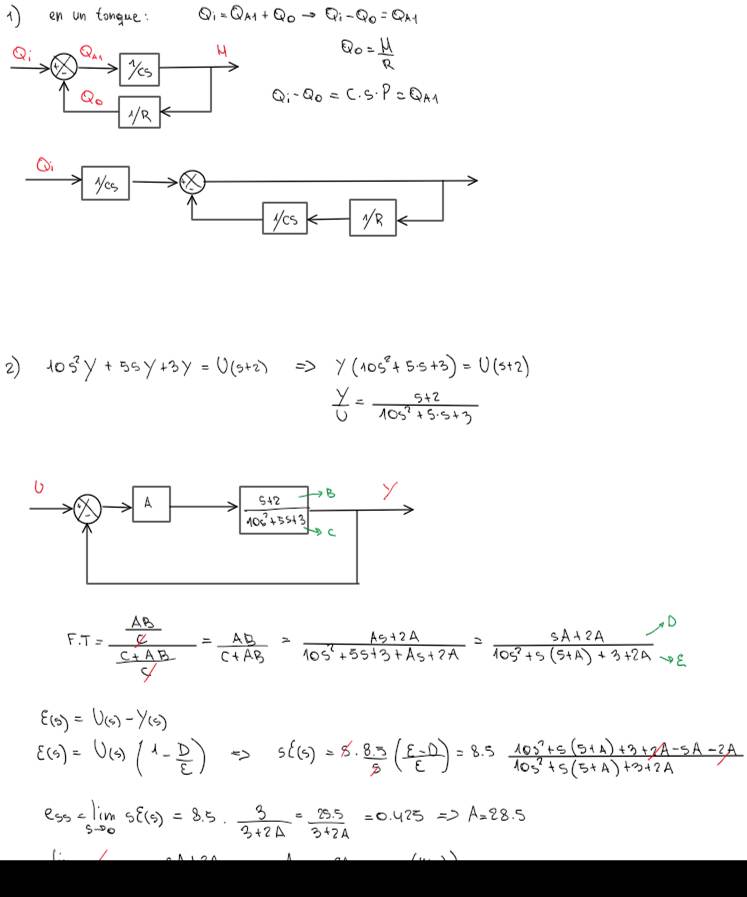 1) en un tanque: Qi = QA1 + Qo → Qi - Qo = QA1
Qo = H/R
Qi QA1 1/CS H
Qo 1/R
Qi - Qo = C.S.P = QA1
Qi 1/CS
1/CS 1/R
2) 10s²Y + 5sY + 3Y = U(s+2) => Y(10s² + 5·s + 3) = U(s+2)
Y/U = (s+2)/(10s² + 5·s + 3)
U A (s+2)/(10s² + 5s + 3) B C Y
F.T = (AB/C)/((C+AB)/C) = AB/(C+AB) = (As+2A)/(10s² + 5s + 3 + As + 2A) = (sA+2A)/(10s² + s(5+A) + 3 + 2A) D E
E(s) = U(s) - Y(s)
E(s) = U(s) (1 - D/E) => sE(s) = s · 8.5/s ((E-D)/E) = 8.5 (10s² + s(5+A) + 3 + 2A - sA - 2A)/(10s² + s(5+A) + 3 + 2A)
ess = lim s→0 sE(s) = 8.5 · 3/(3+2A) = 25.5/(3+2A) = 0.425 => A = 28.5